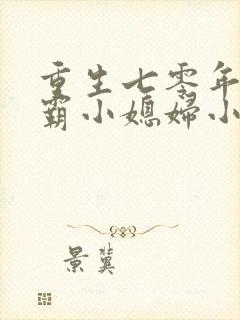 重生七零年
霸小媳妇小
景冀